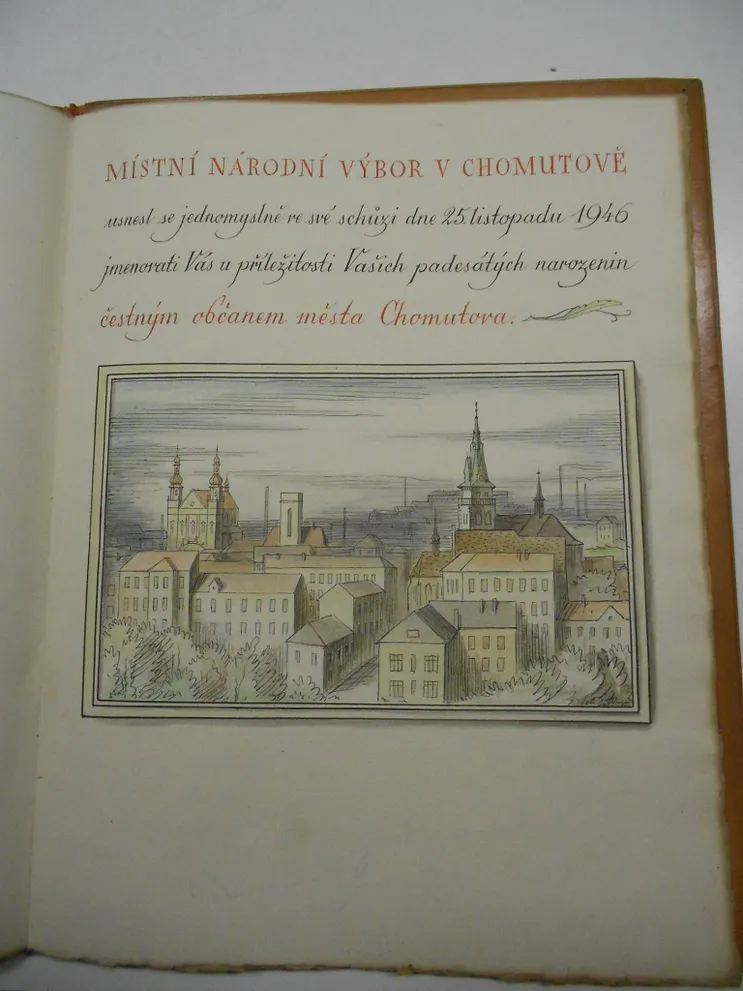 MÍSTNÍ NÁRODNÍ VÝBOR V CHOMUTOVĚ
usnesl se jednomyslně ve své schůzi dne 25. listopadu 1946
jmenovati Vás u příležitosti Vašich padesátých narozenin
čestným občanem města Chomutova.